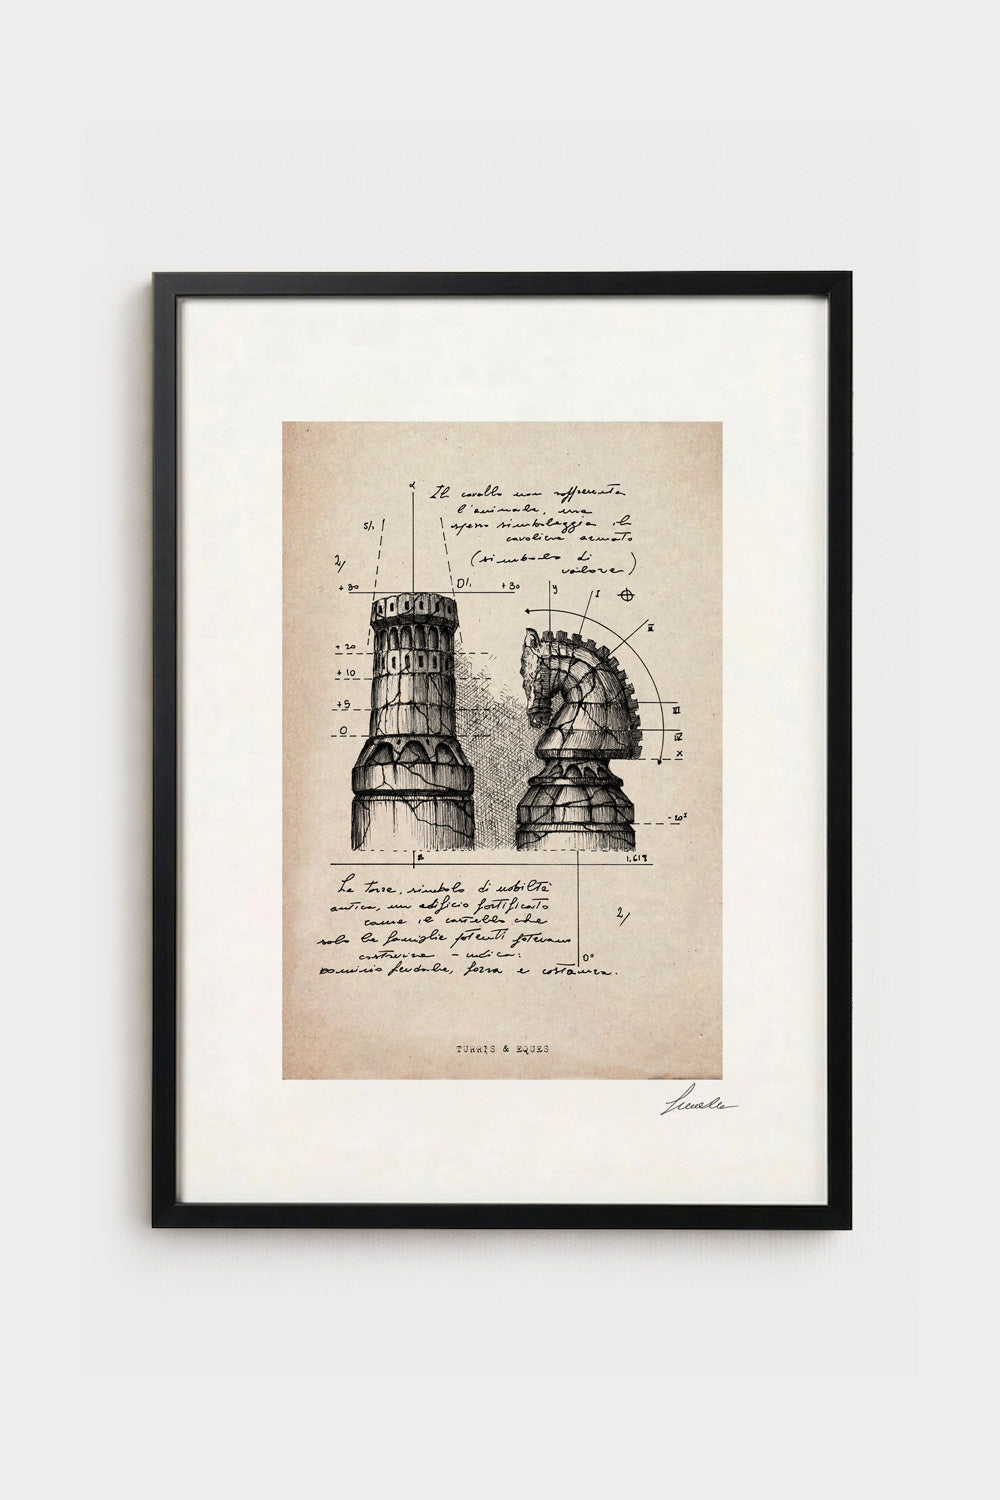 α
Il cavallo non rappresenta
l'animale, ma
spesso simboleggia il
cavaliere armato
(simbolo di
valore)
S/1
2/
+30
D/1
+30
y
I
II
+20
+10
+5
0
III
IV
X
-20
1,618
La Torre, simbolo di nobiltà
antica, un edificio fortificato
come il castello che
solo le famiglie potenti potevano
costruire - indica:
Dominio feudale, forza e costanza.
2/
D°
TURRIS & EQUES